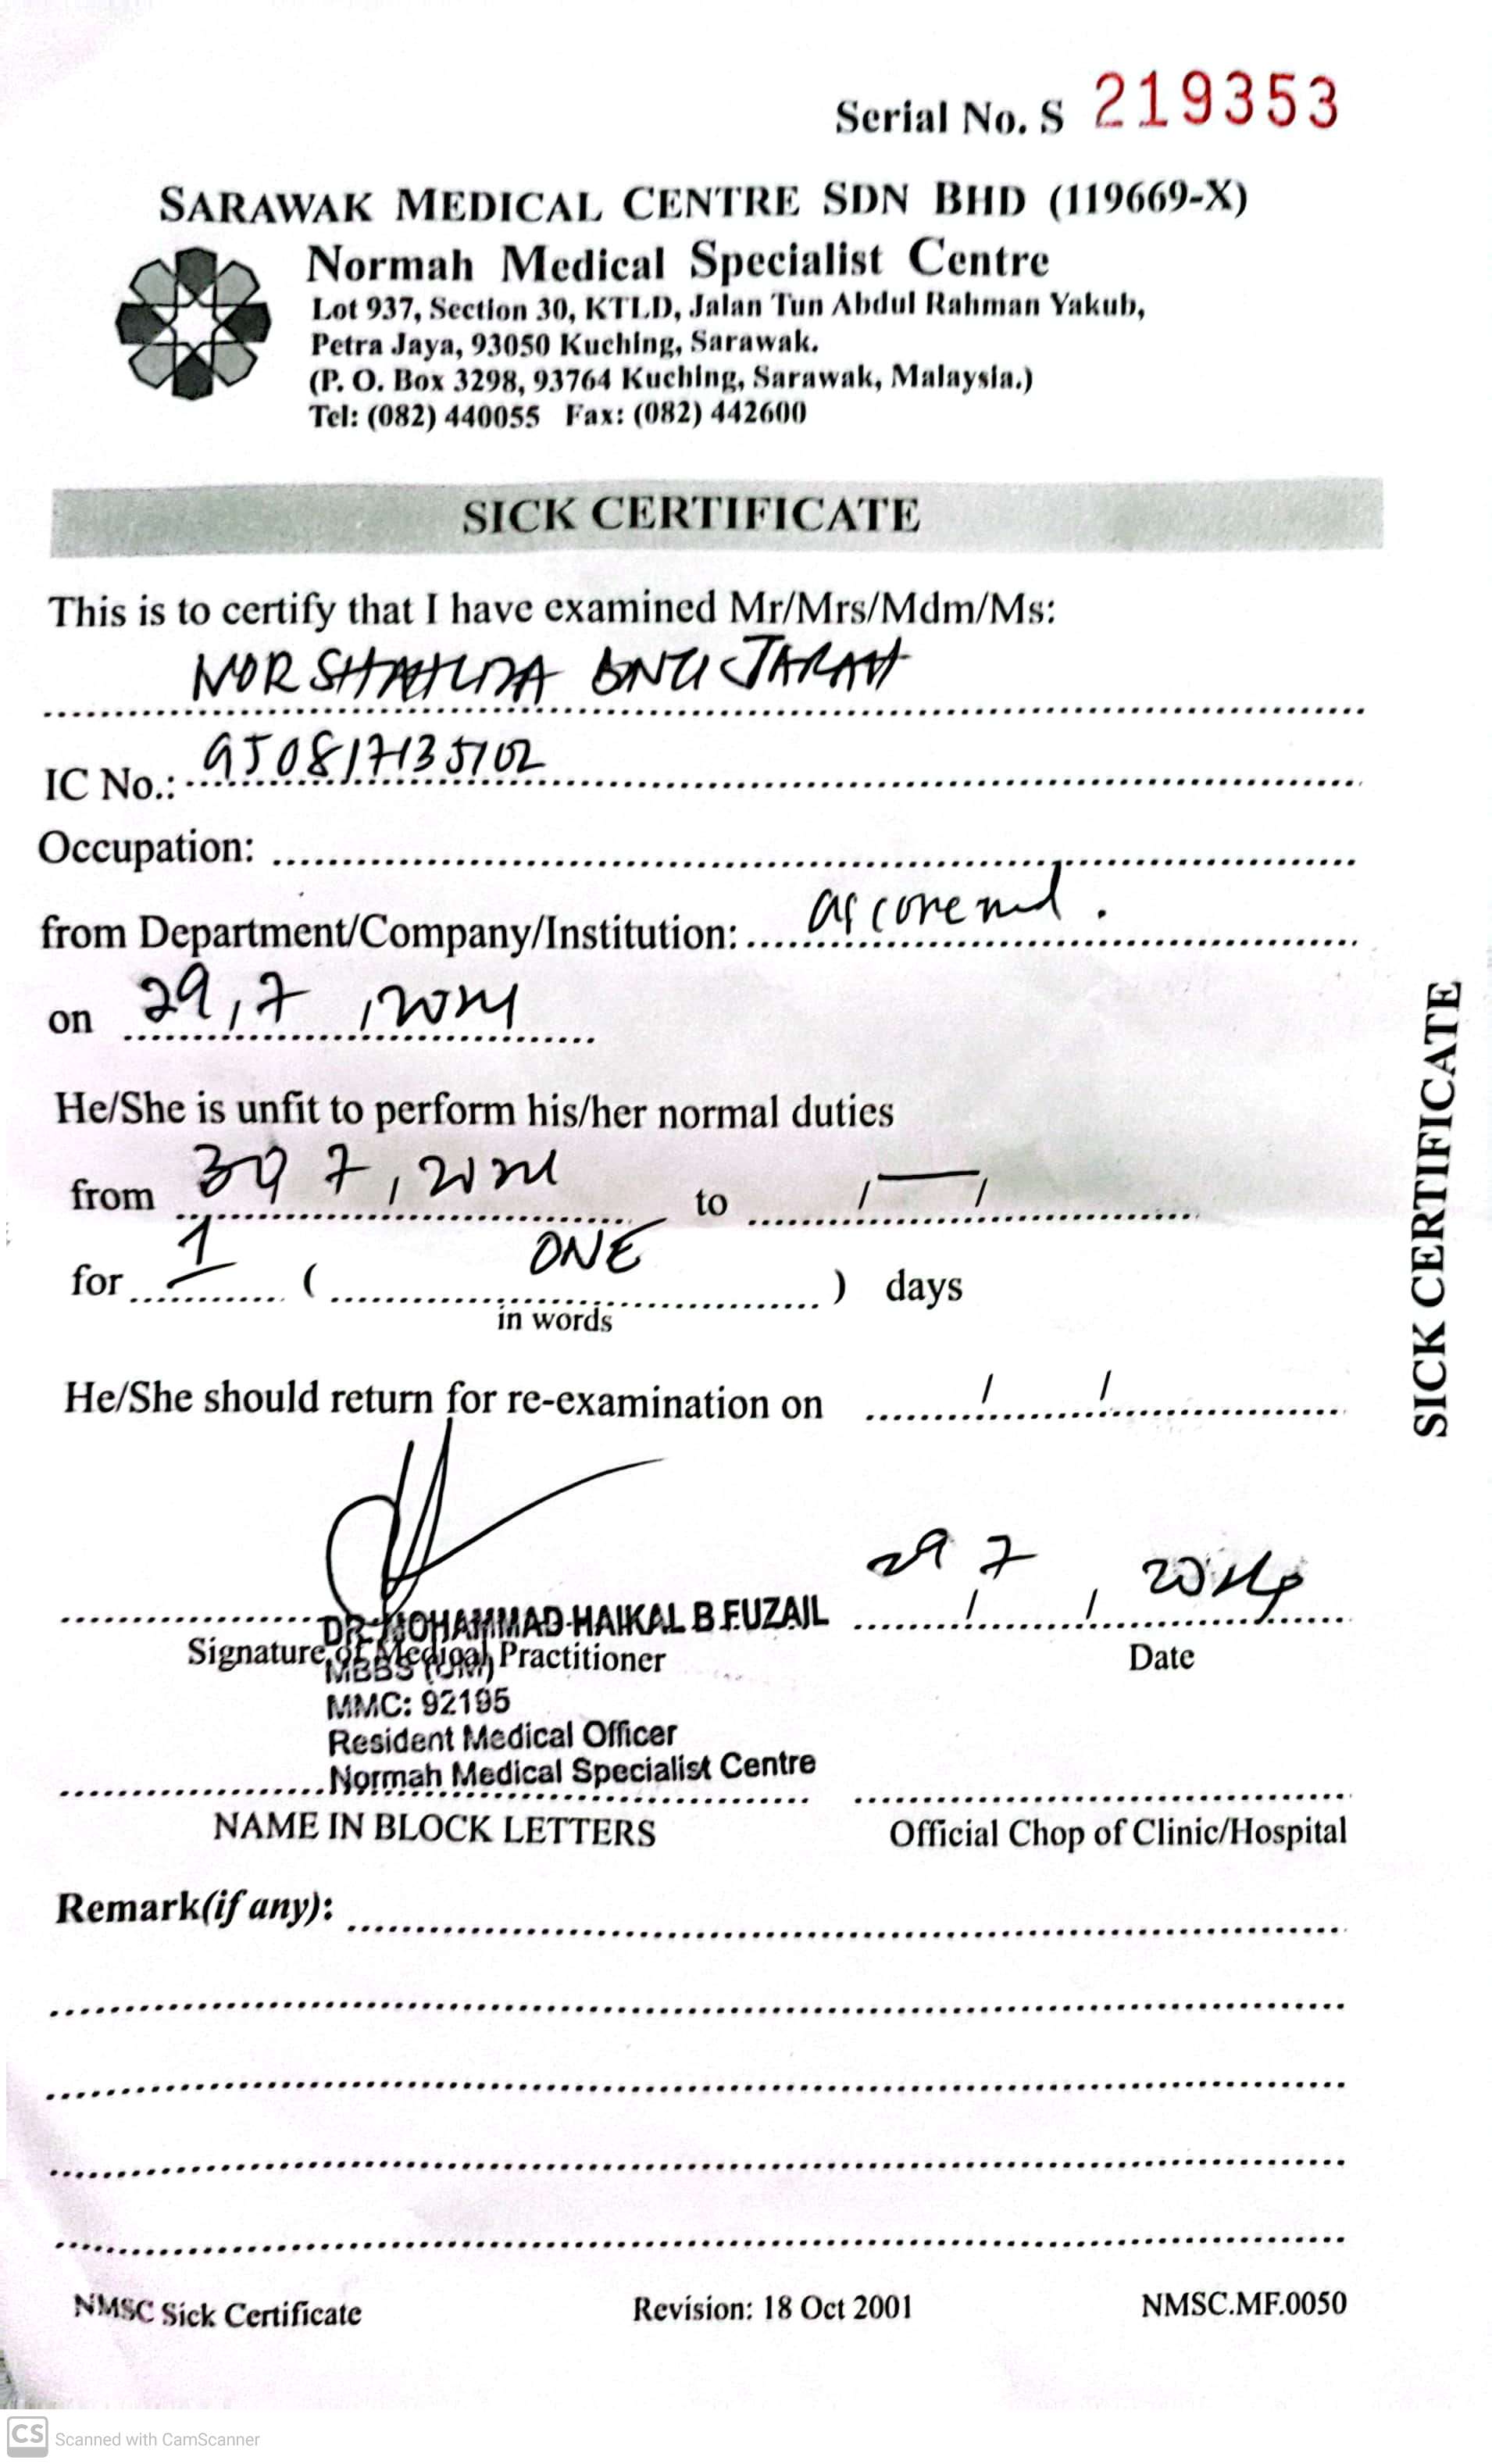 Serial No. S 219353
SARAWAK MEDICAL CENTRE SDN BHD (119669-X)
Normah Medical Specialist Centre
Lot 937, Section 30, KTLD, Jalan Tun Abdul Rahman Yakub,
Petra Jaya, 93050 Kuching, Sarawak.
(P. O. Box 3298, 93764 Kuching, Sarawak, Malaysia.)
Tel: (082) 440055 Fax: (082) 442600
SICK CERTIFICATE
This is to certify that I have examined Mr/Mrs/Mdm/Ms:
NOR
IC No.: 950817135102
Occupation:
from Department/Company/Institution:
on 29, 7
He/She is unfit to perform his/her normal duties
from 30 7, to
for 1 ( ONE ) days
in words
He/She should return for re-examination on / /
29 7 2024
DR. MOHAMMAD HAIKAL B FUZAIL
Signature of Medical Practitioner Date
MBBS (UM)
MMC: 92195
Resident Medical Officer
Normah Medical Specialist Centre
NAME IN BLOCK LETTERS Official Chop of Clinic/Hospital
Remark(if any):
NMSC Sick Certificate Revision: 18 Oct 2001 NMSC.MF.0050
SICK CERTIFICATE
CS Scanned with CamScanner